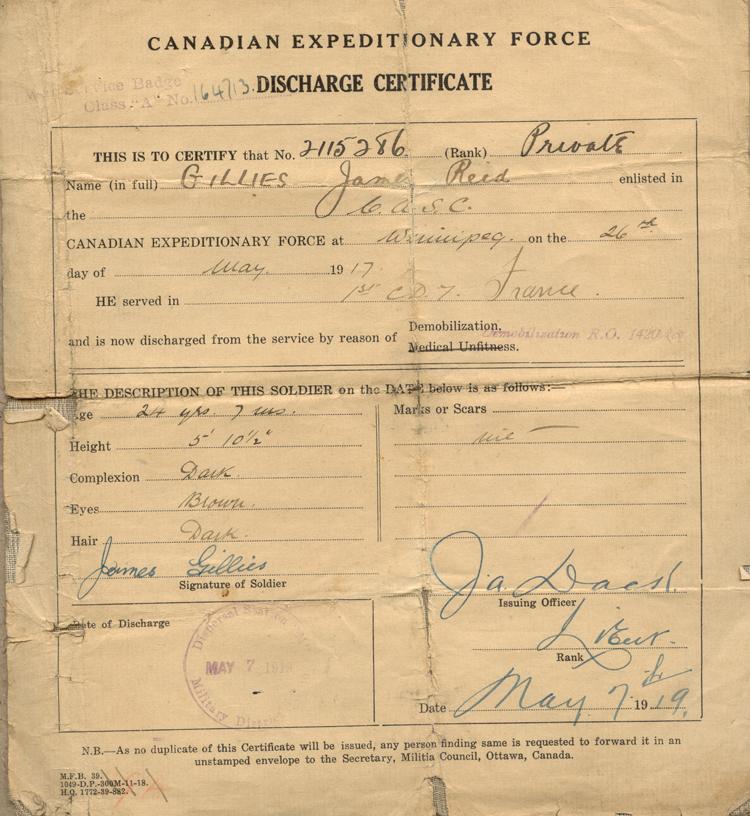 CANADIAN EXPEDITIONARY FORCE
Service Badge
Class "A" No. 164713.
DISCHARGE CERTIFICATE
THIS IS TO CERTIFY that No. 2115286 (Rank) Private
Name (in full) GILLIES James Reid enlisted in
the C.A.S.C.
CANADIAN EXPEDITIONARY FORCE at Winnipeg. on the 26th
day of May. 1917.
HE served in 1st C.D.T. France.
and is now discharged from the service by reason of Demobilization,
Demobilization R.O. 1420
Medical Unfitness.
THE DESCRIPTION OF THIS SOLDIER on the DATE below is as follows:—
Age 24 yrs. 7 ms.
Height 5' 10½"
Complexion Dark.
Eyes Brown.
Hair Dark.
James Gillies
Signature of Soldier
Marks or Scars
nil
Issuing Officer
Lieut.
Rank
Date May 7th 1919.
Date of Discharge
Dispersal Station
MAY 7 1919
Military District
N.B.—As no duplicate of this Certificate will be issued, any person finding same is requested to forward it in an
unstamped envelope to the Secretary, Militia Council, Ottawa, Canada.
M.F.B. 39.
1049-D.P.-300M-11-18.
H.Q. 1772-39-882.